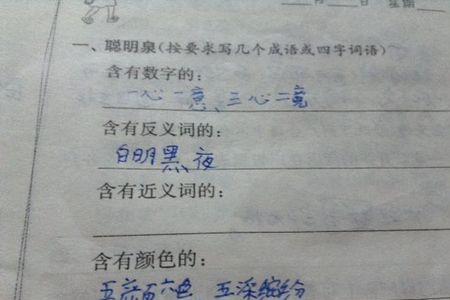 ___月___日 星期___
一、聪明泉(按要求写几个成语或四字词语)
含有数字的:
一心一意、三心二意
含有反义词的:
白明黑夜
含有近义词的:
含有颜色的:
五颜六色 五深缤纷